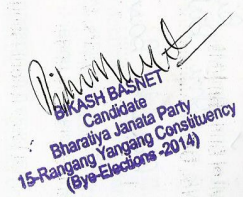 BIKASH BASNET
Candidate
Bharatiya Janata Party
15-Rangang Yangang Constituency
(Bye-Elections -2014)